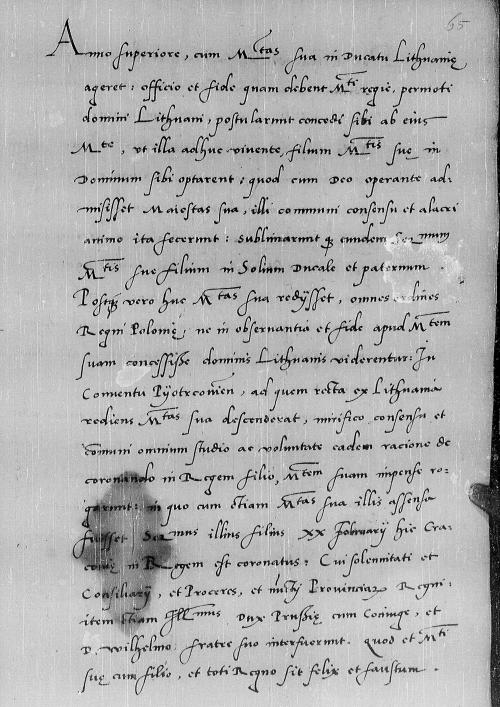 65
Anno superiore, cum M^tas sua in Ducatu Lithuanię
ageret: officio et fide quam debent M^ti regie, permoti
domini Lithuani, postularunt concedi sibi ab eius
M^te, vt illa adhuc vivente, filium M^tis suę in
Dominum sibi optarent: quod cum Deo operante ad-
misisset Maiestas sua, illi communi consensu et alacri
animo ita fecerunt: sublimarunt q3 eundem Ser^mum
M^tis sue filium in Solium Ducale et paternum.
Postq3 vero huc M^tas sua redysset, omnes ordines
Regni Polonię, ne in observantia et fide apud M^tem
suam concessisse dominis Lithuanis viderentur: In
Conventu Pijotrcovien, ad quem recta ex Lithuania
rediens M^tas sua descenderat, mirifico consensu et
com̄uni omnium studio ac voluntate eadem racione de
coronando in Regem filio, M^tem suam inpense ro-
garunt: in quo cum etiam M^tas sua illis assensa
fuisset Ser^mus illius filius xx februarij hic Cra-
covię in Regem est coronatus: Cui solennitati et
Consiliarij, et Proceres, et nuntij Provinciar Regni:
item etiam Ill^mus Dux Prussię cum Coniuge, et
D. Wilhelmo fratre suo interfuerunt. quod et M^ti
suę cum filio, et toti Regno sit felix et faustum.